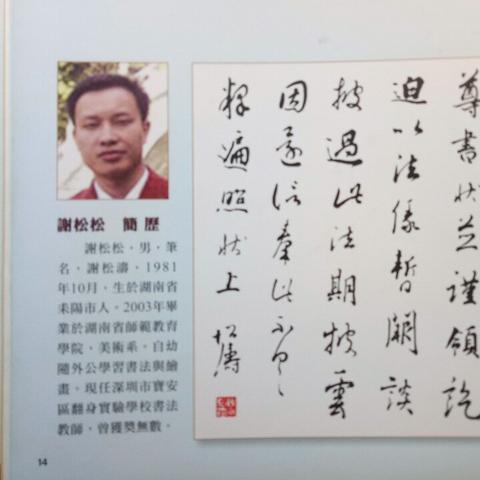 謝松松 簡歷
謝松松，男，筆
名，謝松濤，1981
年10月，生於湖南省
耒陽市人。2003年畢
業於湖南省師範教育
學院、美術系。自幼
隨外公學習書法與繪
畫。現任深圳市寶安
區翻身實驗學校書法
教師，曾獲獎無數。
尊書狀並謹領訖
迫以法暫闕談
披過此法期披雲
因還信奉此不
釋遍照狀上
松濤
14